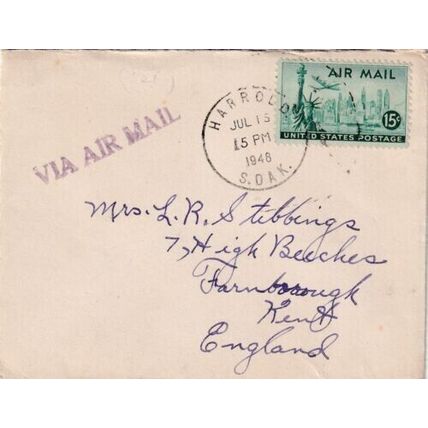 AIR MAIL
15¢
UNITED STATES POSTAGE
HARROLD
JUL 15
15 PM
1948
S. DAK.
VIA AIR MAIL
Mrs. L. R. Stibbings
7, High Beeches
Farnborough
Kent
England